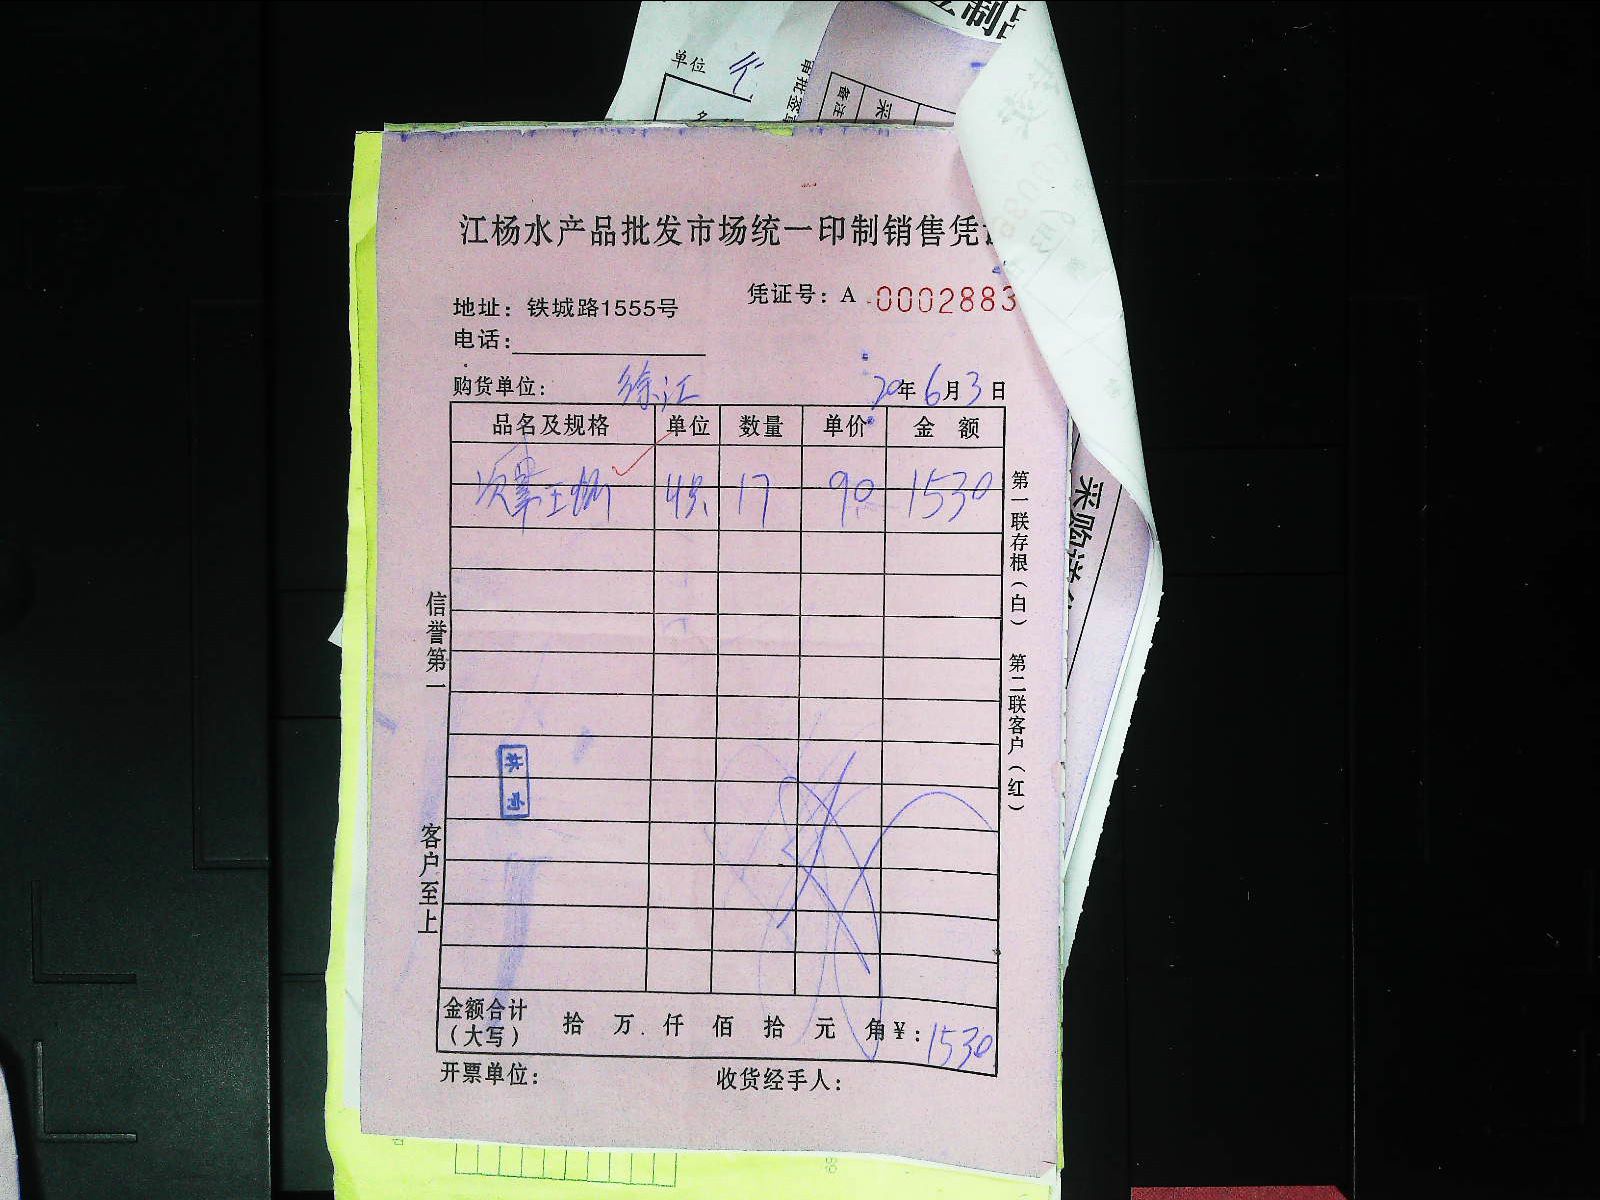 制品
单位
审批签
备注
采
江杨水产品批发市场统一印制销售凭
凭证号：A 0002883
地址：铁城路1555号
电话：
购货单位：徐江 20年6月3日
品名及规格 单位 数量 单价 金额
4只 17 90 1530
第一联存根（白） 第二联客户（红）
采购
信誉第一
客户至上
金额合计（大写） 拾 万 仟 佰 拾 元 角 ¥：1530
开票单位： 收货经手人：